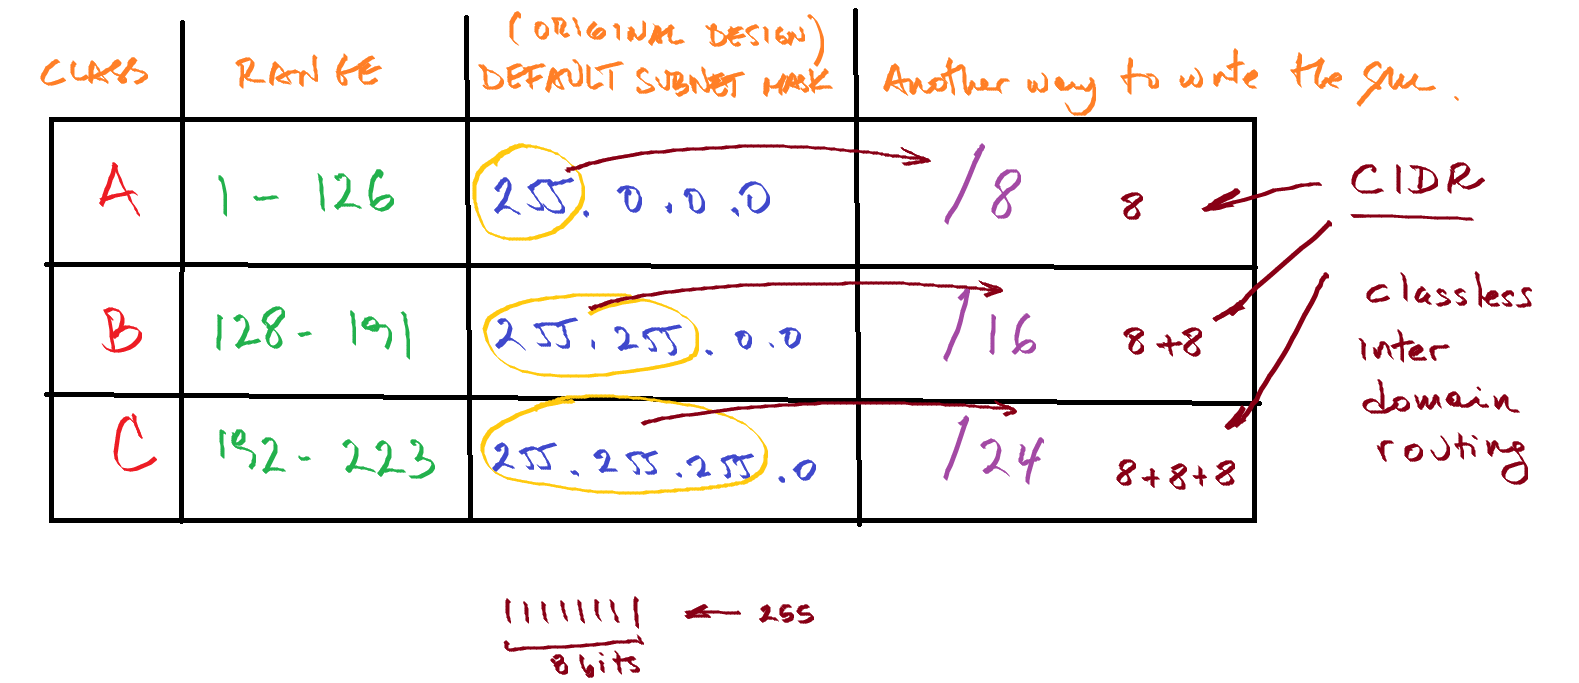 (ORIGINAL DESIGN)
CLASS RANGE DEFAULT SUBNET MASK Another way to write the same.
A 1 - 126 255.0.0.0 /8 8
CIDR
B 128 - 191 255.255.0.0 /16 8+8
C 192 - 223 255.255.255.0 /24 8+8+8
classless
inter
domain
routing
11111111 ← 255
8 bits